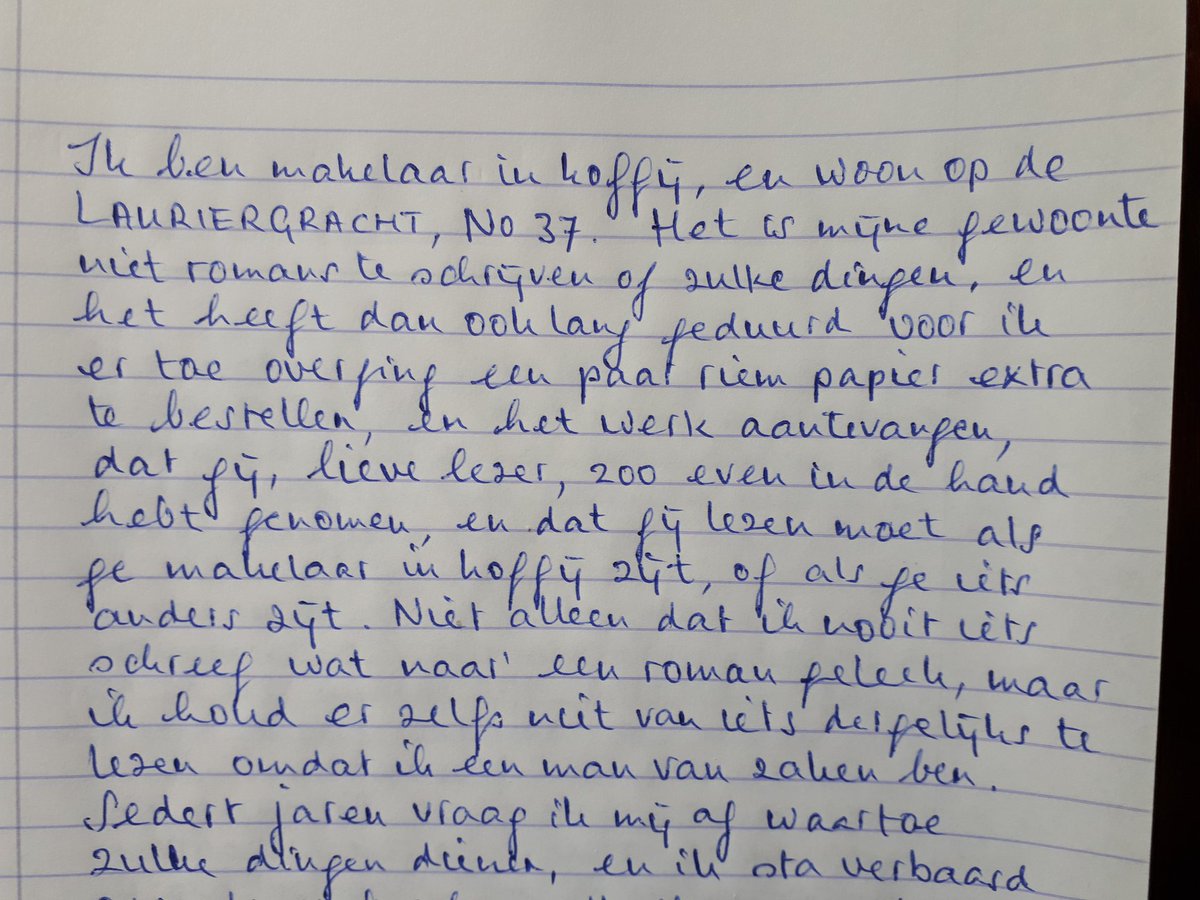 Ik ben makelaar in koffij, en woon op de
LAURIERGRACHT, No 37. Het is mijne gewoonte
niet romans te schrijven of zulke dingen, en
het heeft dan ook lang geduurd voor ik
er toe overging een paar riem papier extra
te bestellen, en het werk aantevangen,
dat gij, lieve lezer, zoo even in de hand
hebt genomen, en dat gij lezen moet als
ge makelaar in koffij zijt, of als ge iets
anders zijt. Niet alleen dat ik nooit iets
schreef wat naar een roman geleek, maar
ik houd er zelfs niet van iets dergelijks te
lezen omdat ik een man van zaken ben.
Sedert jaren vraag ik mij af waartoe
zulke dingen dienen, en ik sta verbaard